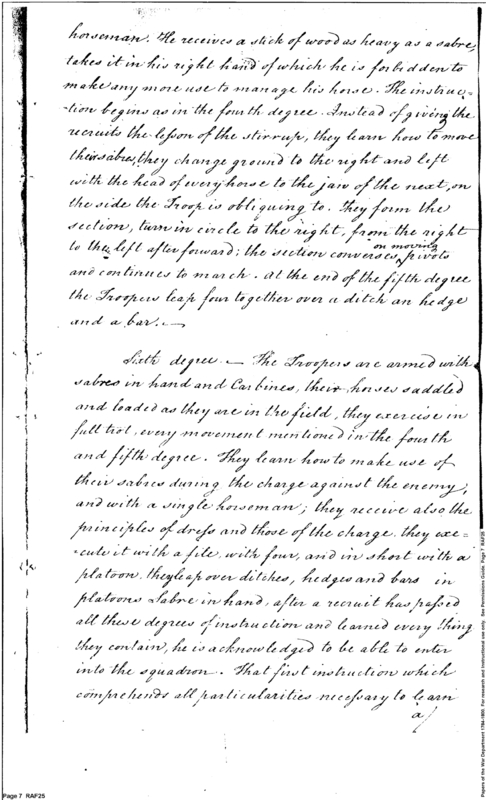 horseman. He receives a stick of wood as heavy as a sabre,
takes it in his right hand of which he is forbidden to
make any more use to manage his horse. The instruc-
-tion begins as in the fourth degree. Instead of giving the
recruits the lesson of the stirrup, they learn how to move
their sabres, they change ground to the right and left
with the head of every horse to the jaw of the next, on
the side the Troop is obliquing to. They form the
section, turn in circle to the right, from the right
to the left after forward; the section converses on moving pivots
and continues to march. At the end of the fifth degree
the Troopers leap four together over a ditch an hedge
and a bar. —
Sixth degree. — The Troopers are armed with
sabres in hand and Carbines, their horses saddled
and loaded as they are in the field, they exercise in
full trot, every movement mentioned in the fourth
and fifth degree. They learn how to make use of
their sabres during the charge against the enemy,
and with a single horseman; they receive also the
principles of dress and those of the charge, they exe-
-cute it with a file, with four, and in short with a
platoon, they leap over ditches, hedges and bars in
platoons Sabre in hand, after a recruit has passed
all these degrees of instruction and learned every thing
they contain, he is acknowledged to be able to enter
into the squadron. That first instruction which
comprehends all particularities necessary to learn
a/
Page 7 RAF25
Papers of the War Department 1784-1800. For research and instructional use only. See Permissions Guide. Page 7 RAF25